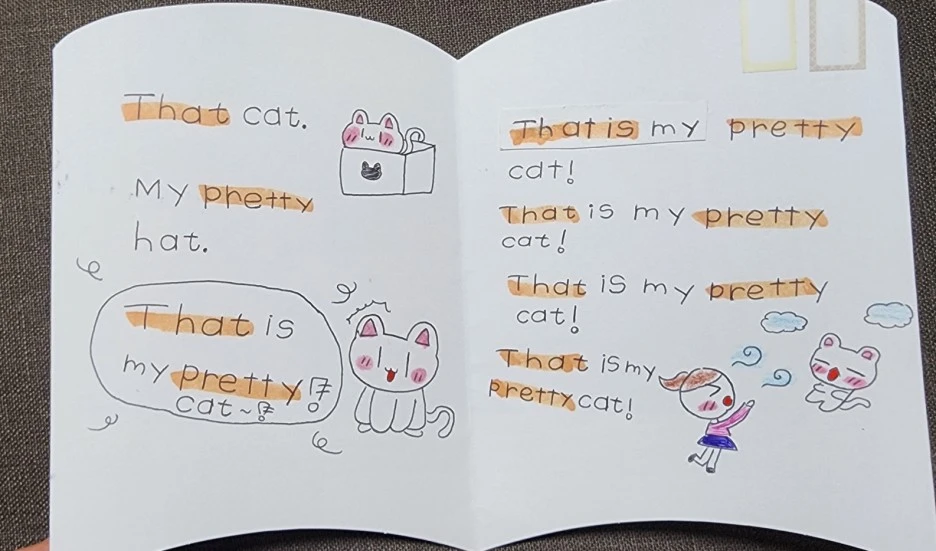 That cat.
My pretty
hat.
That is
my pretty!?
cat~!?
That is my pretty
cat!
That is my pretty
cat!
That is my pretty
cat!
That is my
pretty cat!